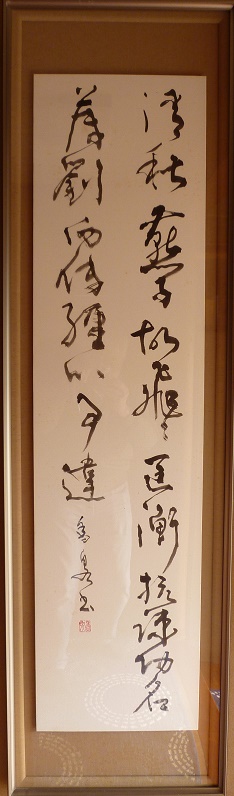 清秋燕子故飛々匡衡抗疏功名
薄劉向傳經心事違
書